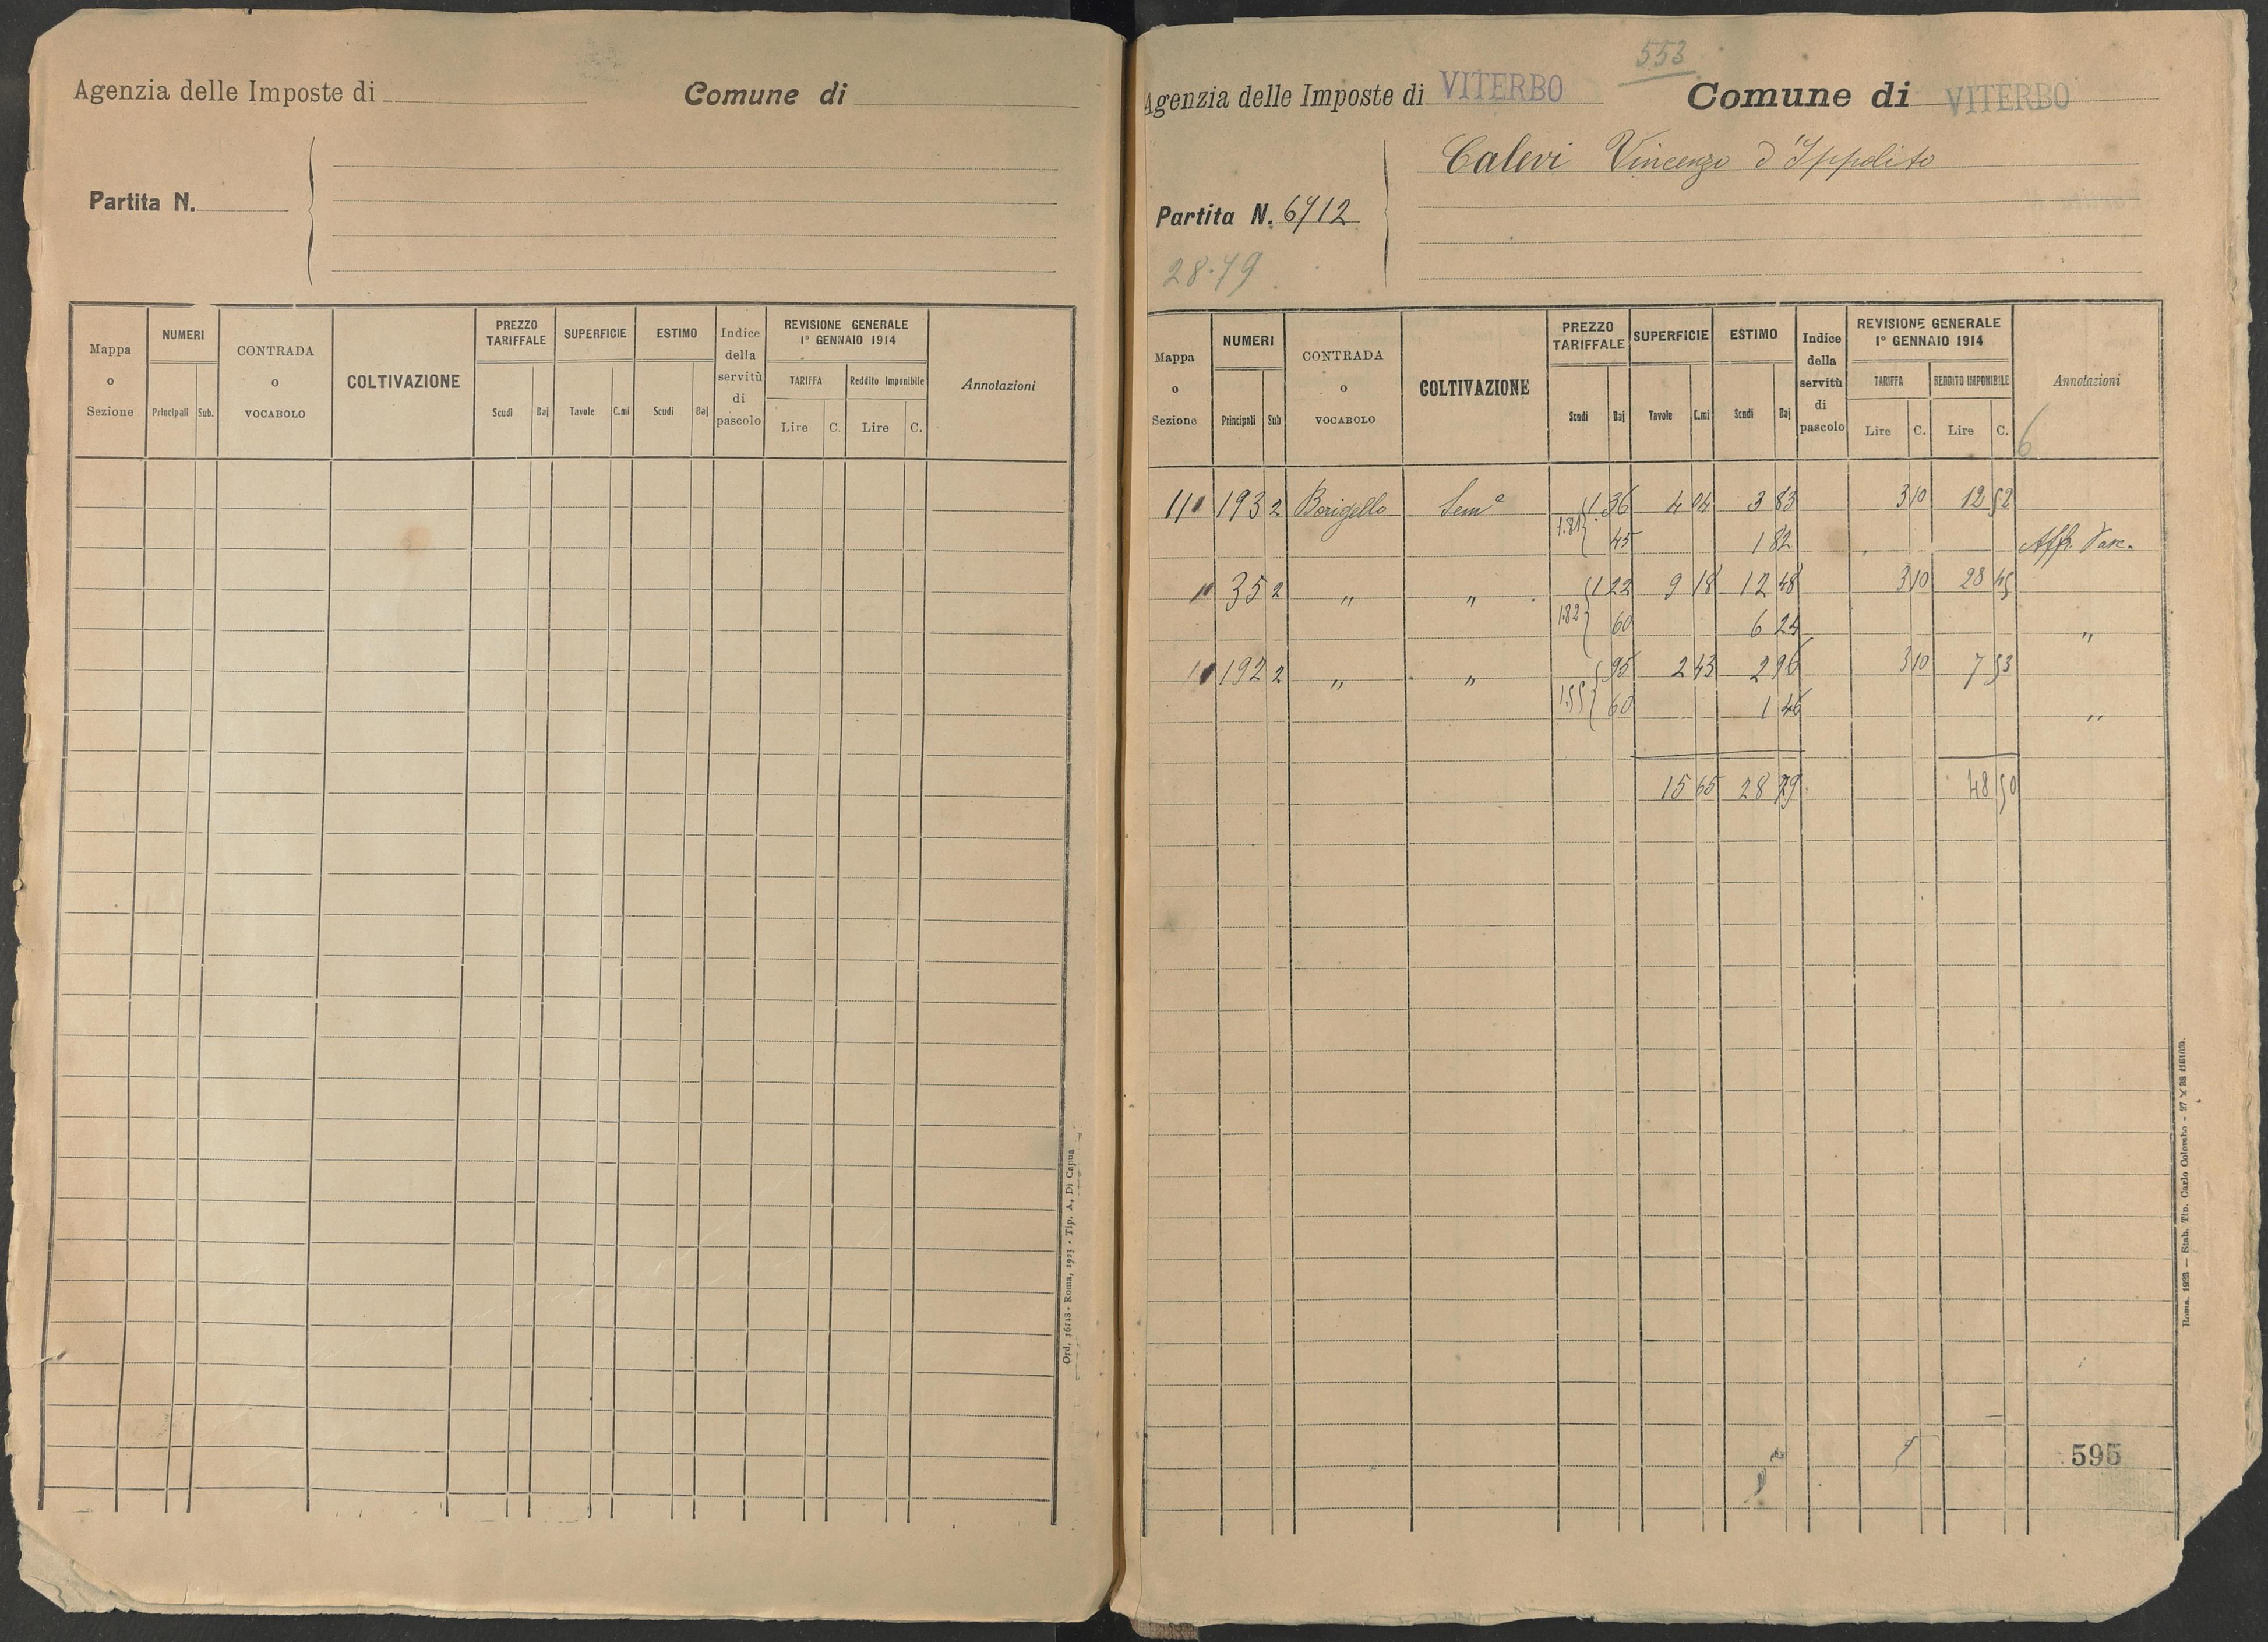 Agenzia delle Imposte di Comune di
Partita N.
Mappa o Sezione NUMERI Principali Sub. CONTRADA o VOCABOLO COLTIVAZIONE PREZZO TARIFFALE Scudi Baj SUPERFICIE Tavole C.mi ESTIMO Scudi Baj Indice della servitù di pascolo REVISIONE GENERALE 1° GENNAIO 1914 TARIFFA Lire C. Reddito Imponibile Lire C. Annotazioni
Ord. 16118 - Roma, 1923 - Tip. A. Di Capua
553
Agenzia delle Imposte di VITERBO Comune di VITERBO
Calevi Vincenzo d'Ippolito
Partita N. 6712
28.79
Mappa o Sezione NUMERI Principali Sub CONTRADA o VOCABOLO COLTIVAZIONE PREZZO TARIFFALE Scudi Baj SUPERFICIE Tavole C.mi ESTIMO Scudi Baj Indice della servitù di pascolo REVISIONE GENERALE 1° GENNAIO 1914 TARIFFA Lire C. REDDITO IMPONIBILE Lire C. Annotazioni
6
193 2 Borigello Seme 1 36 4 04 3 83 3 10 12 52
1.81 45 1 82 Aff. Vac.
35 2 " " 1 22 9 18 12 48 3 10 28 45
1.82 60 6 24 "
192 2 " " 95 2 43 2 96 3 10 7 53
1.55 60 1 46 "
15 65 28 79 48 50
595
Roma, 1923 — Stab. Tip. Carlo Colombo - 27 X 38